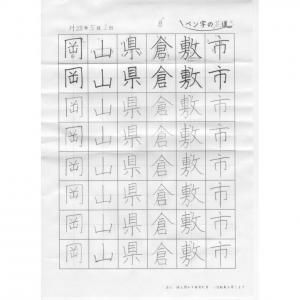 ペン字の
岡山県倉敷市
岡山県倉敷市
岡山県倉敷市
岡山県倉敷市
岡山県倉敷市
岡山県倉敷市
岡山県倉敷市
岡山県倉敷市